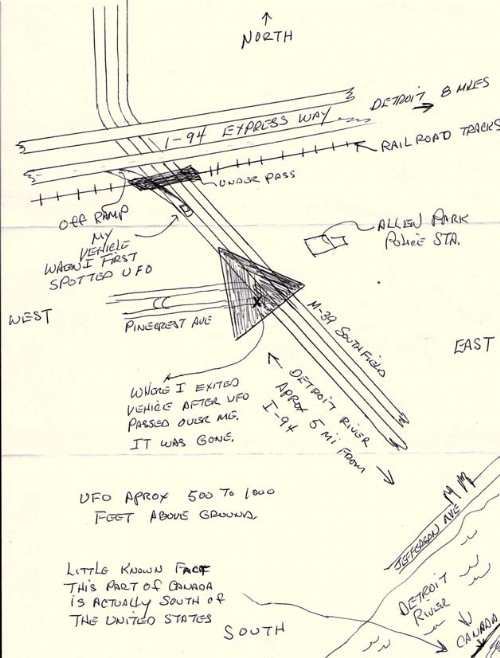 NORTH
DETROIT 8 MILES
I-94 EXPRESS WAY
RAILROAD TRACKS
UNDER PASS
OFF RAMP
MY
VEHICLE
WHEN I FIRST
SPOTTED UFO
ALLEN PARK
POLICE STA.
WEST
PINECREST AVE
X
M-39 SOUTHFIELD
EAST
WHERE I EXITED
VEHICLE AFTER UFO
PASSED OVER ME.
IT WAS GONE.
DETROIT RIVER
APROX 5 MI FROM
I-94
UFO APROX 500 TO 1000
FEET ABOVE GROUND.
JEFFERSON AVE
LITTLE KNOWN FACT
THIS PART OF CANADA
IS ACTUALLY SOUTH OF
THE UNITED STATES
DETROIT
RIVER
CANADA
SOUTH